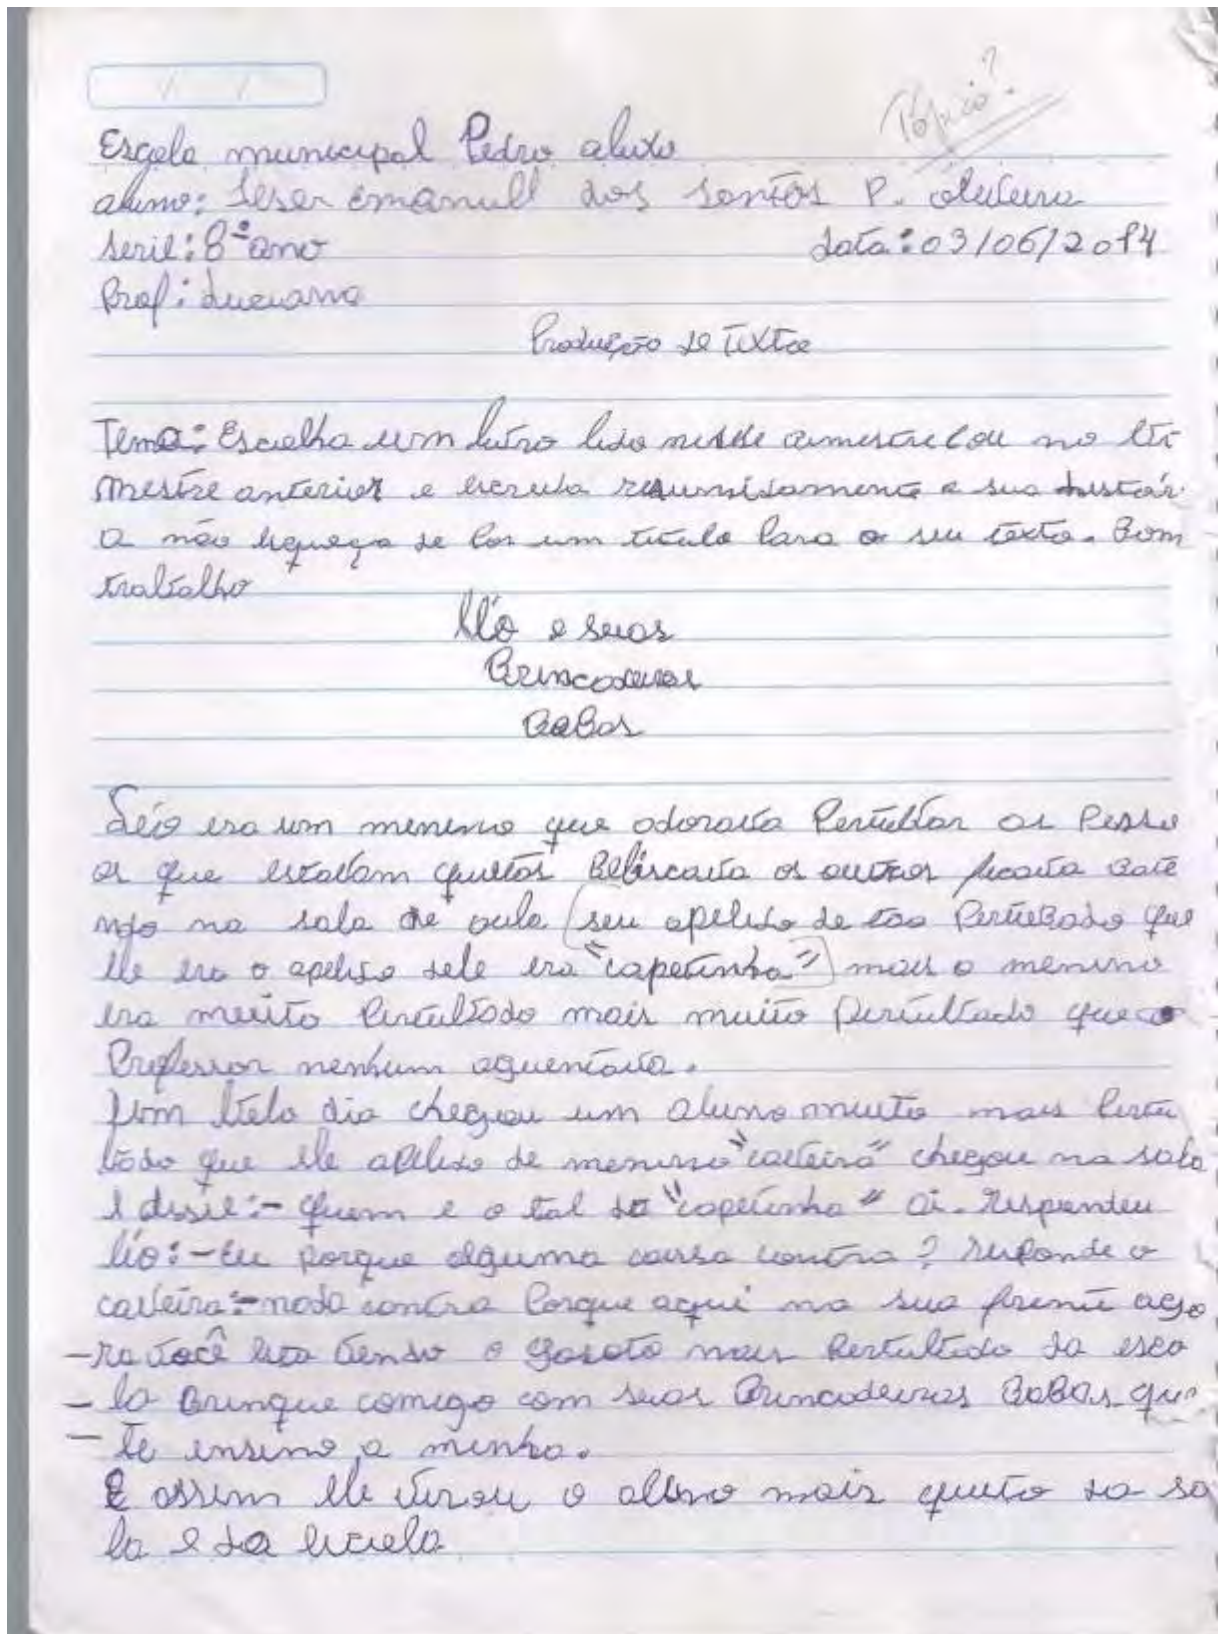 Tópico?
Escola municipal Pedro aleixo
aluno: Emanuell dos santos P. oliveira
serie: 8º ano data: 03/06/2014
Prof: Luciana
Produção de Texto
Tema: Escolha um livro lido nesse bimestre ou no bi-
mestre anterior e escreva resumidamente a sua histori
a não esqueça de por um titulo Para o seu texto. Bom
trabalho
Léo e suas
Brincadeiras
BoBas
Léo era um menino que adorava Pertubar as Pesso
as que estavam quietas Beliscava os outros ficava Bate
ndo na sala de aula (seu apelido de tão PertuBado que
ele era o apelido dele era "capetinha") mais o menino
era muito Pertubado mais muito pertubado que
Professor nenhum aguentava.
Um belo dia chegou um aluno muito mais Pertu
bado que ele apelido de menino "caveira" chegou na sala
e disse:- Quem e o tal do "capetinha" ai. Respondeu
léo:- Eu porque alguma coisa contra? responde o
caveira:- nada contra Porque aqui na sua frente ago
-ra você esta vendo o garoto mais Pertubado da esco
- la Brinque comigo com suas Brincadeiras BoBas que
- te ensino a minha.
E assim ele virou o aluno mais quieto da sa
la e da escola